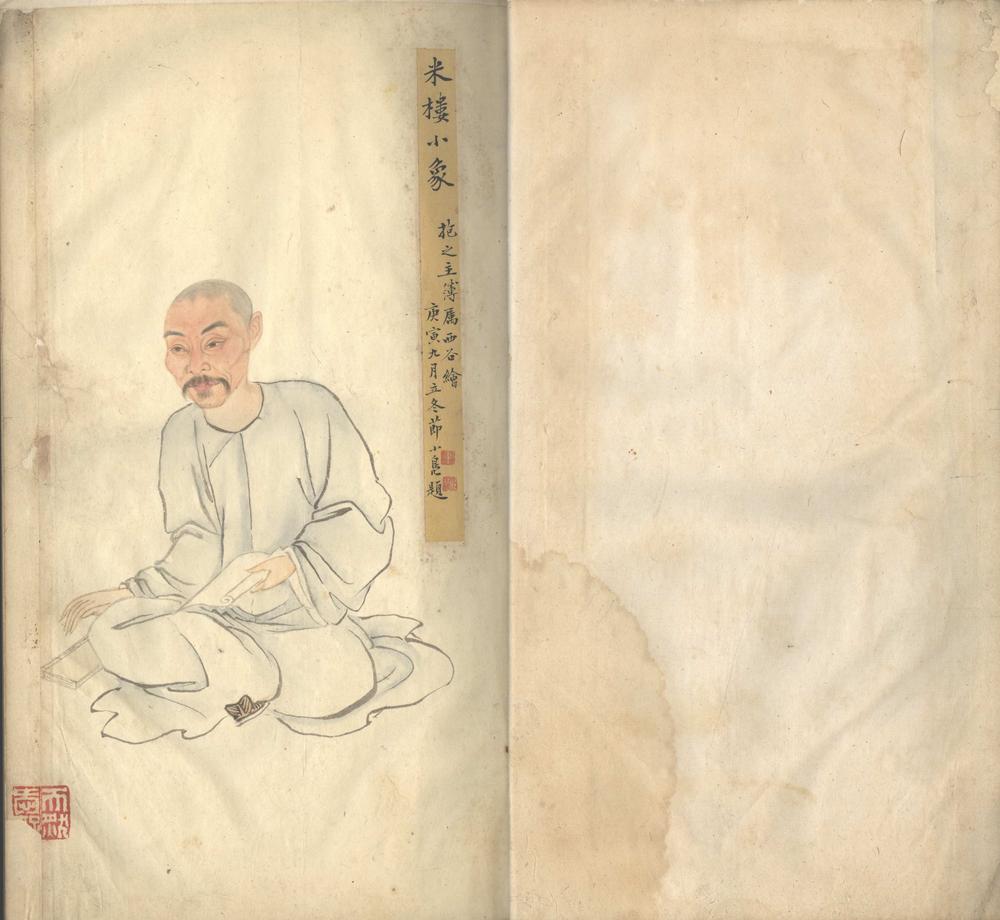 米樓小象
抱之主簿屬西谷繪
庚寅九月立冬節小㲋題